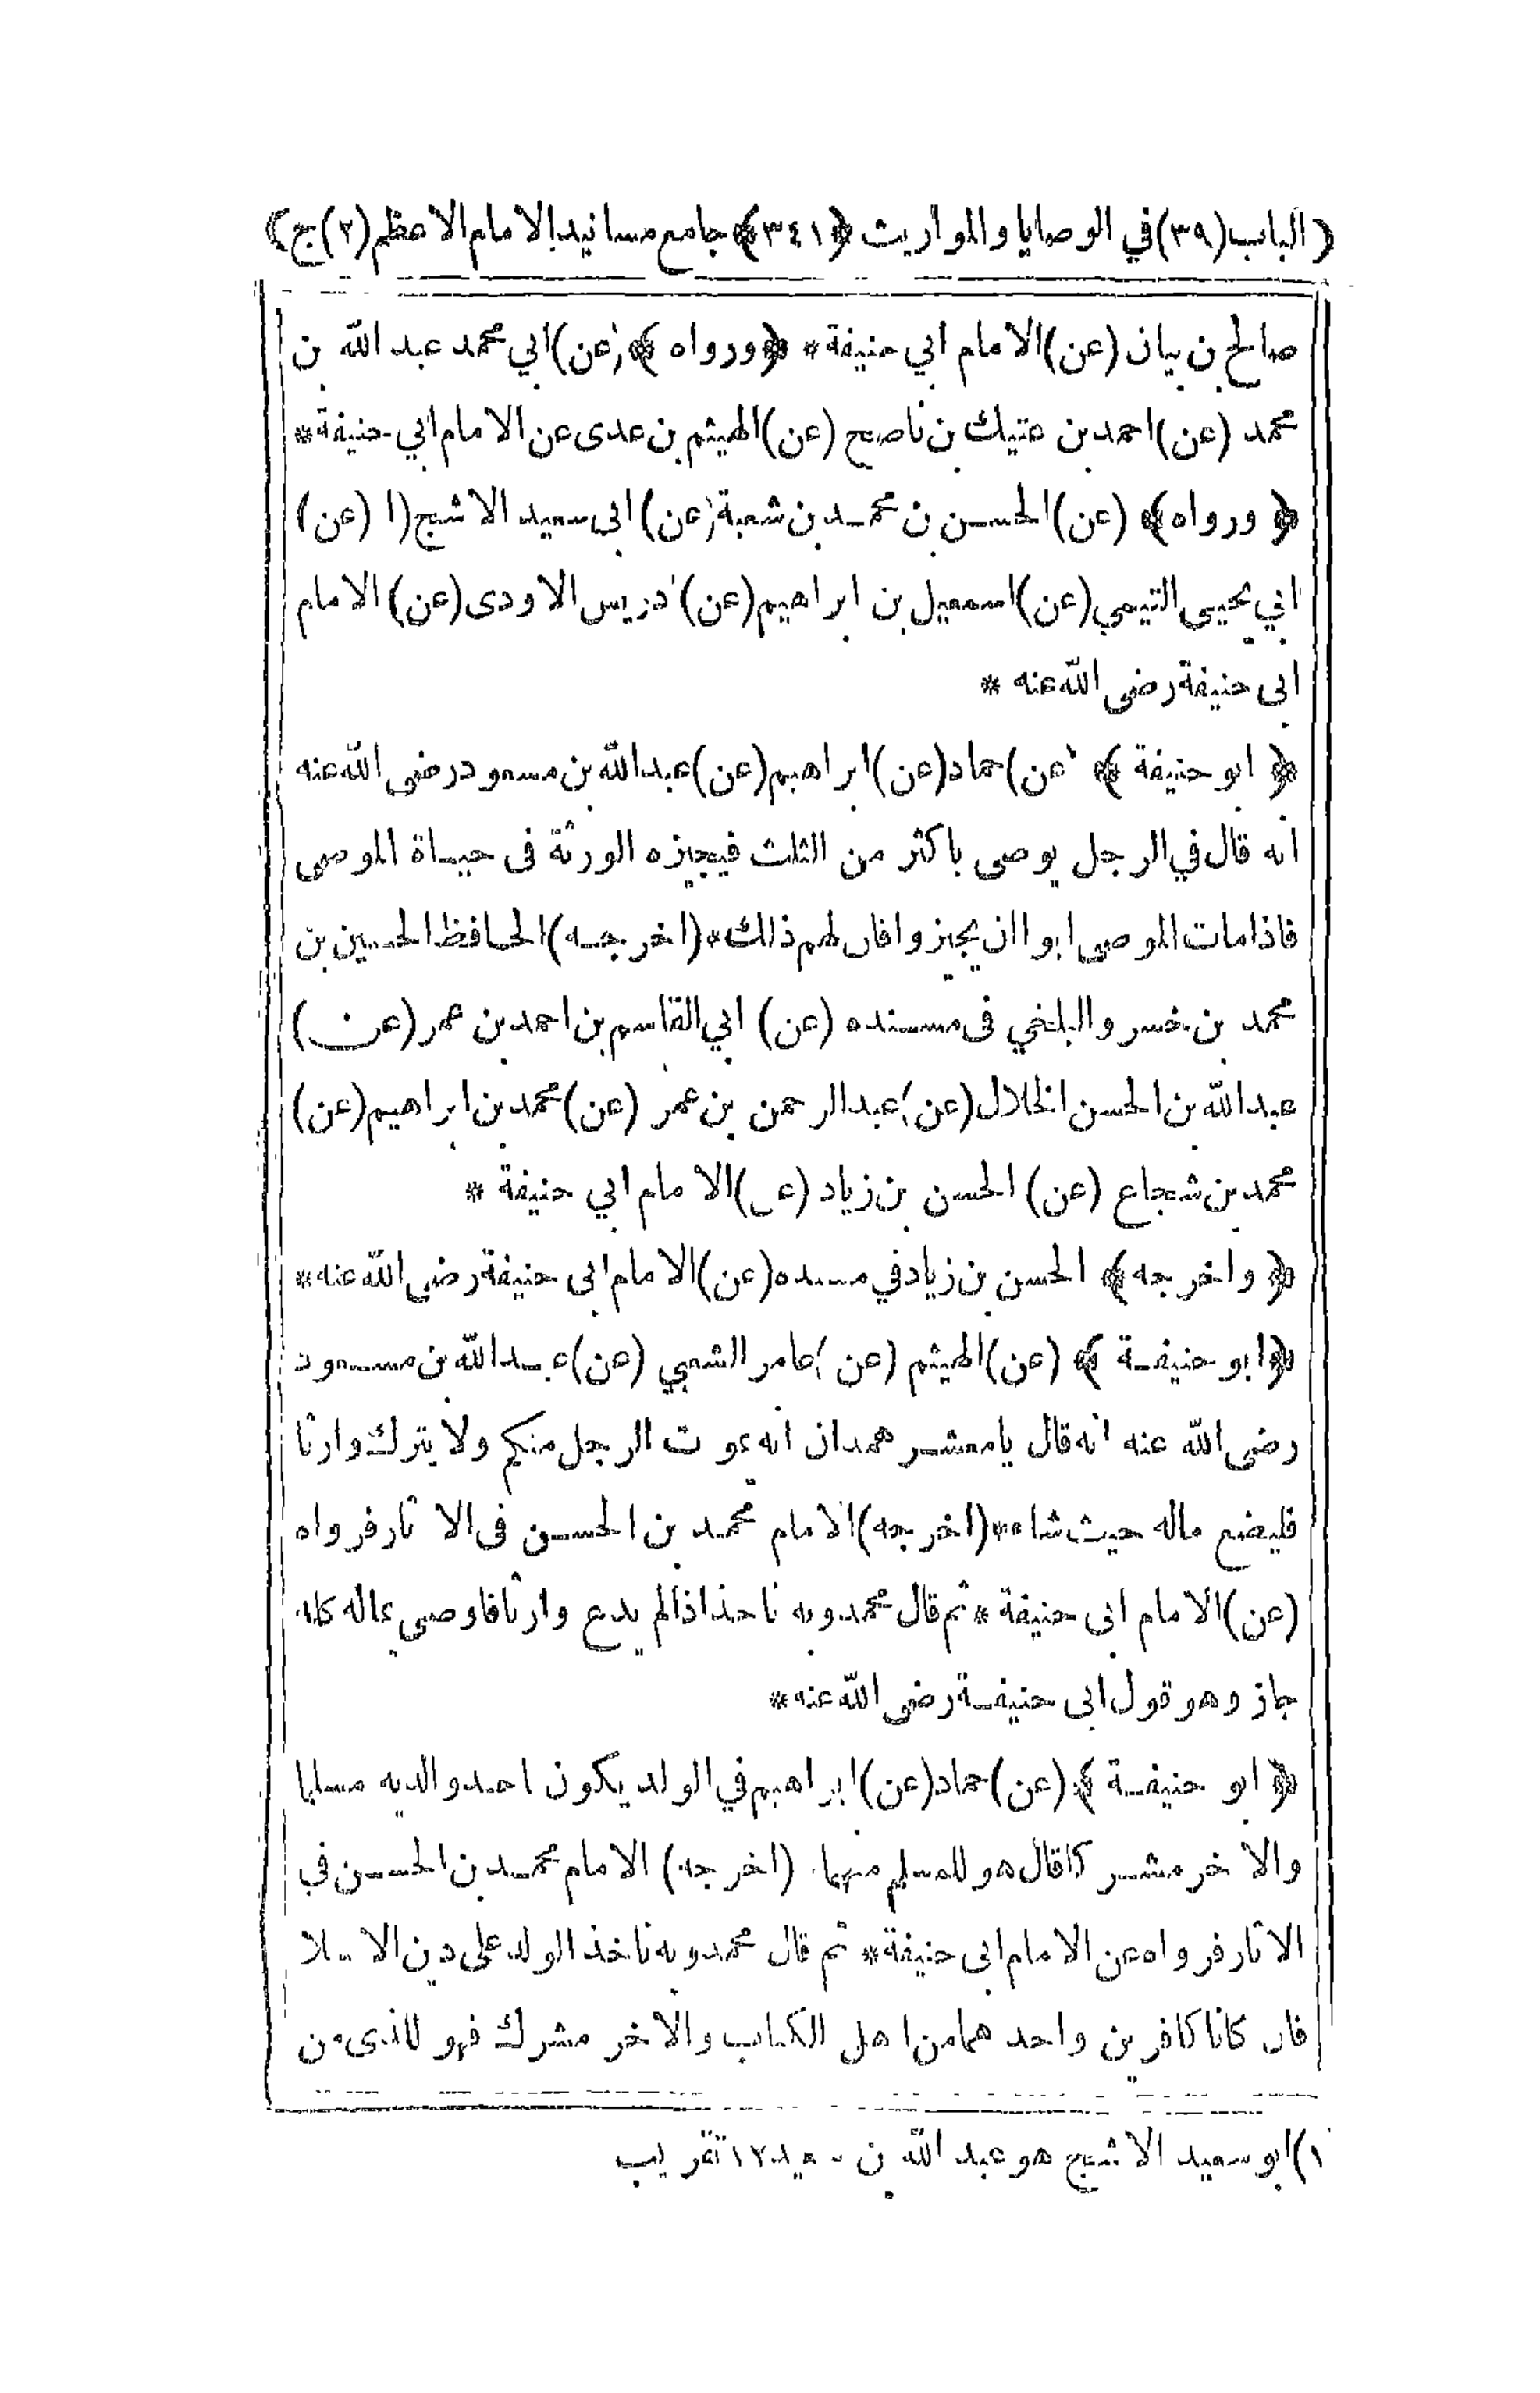 ﴿ الباب (٣٩) في الوصايا والمواريث ﴿٣٤١﴾ جامع مسانيد الامام الاعظم (٢) ج ﴾
صالح بن بيان (عن) الامام ابي حنيفة * ﴿ ورواه ﴾ (عن) ابي محمد عبد الله بن
محمد (عن) احمد بن عتيك بن ناصح (عن) الهيثم بن عدى عن الامام ابي حنيفة *
﴿ ورواه ﴾ (عن) الحسن بن محمد بن شعبة (عن) ابى سعيد الاشج (١ (عن)
ابي يحيى التيمي (عن) اسمعيل بن ابراهيم (عن) ادريس الاودى (عن) الامام
ابى حنيفة رضى الله عنه *
﴿ ابو حنيفة ﴾ (عن) حماد (عن) ابراهيم (عن) عبد الله بن مسعود رضى الله عنه
انه قال في الرجل يوصى باكثر من الثلث فيجيزه الورثة فى حياة الموصى
فاذا مات الموصى ابوا ان يجيزوا فان لهم ذلك * (اخرجه) الحافظ الحسين بن
محمد بن خسرو البلخي فى مسنده (عن) ابي القاسم بن احمد بن عمر (عن)
عبد الله بن الحسن الخلال (عن) عبد الرحمن بن عمر (عن) محمد بن ابراهيم (عن)
محمد بن شجاع (عن) الحسن بن زياد (عن) الامام ابي حنيفة *
﴿ واخرجه ﴾ الحسن بن زياد في مسنده (عن) الامام ابى حنيفة رضى الله عنه *
﴿ ابو حنيفة ﴾ (عن) الهيثم (عن) عامر الشعبي (عن) عبد الله بن مسعود
رضى الله عنه انه قال يا معشر همدان انه يموت الرجل منكم ولا يترك وارثا
فليضع ماله حيث شاء * (اخرجه) الامام محمد بن الحسن فى الاثار فرواه
(عن) الامام ابى حنيفة * ثم قال محمد وبه ناخذ اذا لم يدع وارثا فاوصى بماله كله
جاز وهو قول ابى حنيفة رضى الله عنه *
﴿ ابو حنيفة ﴾ (عن) حماد (عن) ابراهيم في الولد يكون احد والديه مسلما
والاخر مشركا قال هو للمسلم منهما. (اخرجه) الامام محمد بن الحسن في
الاثار فرواه عن الامام ابى حنيفة * ثم قال محمد وبه ناخذ الولد على دين الاسلام
فان كانا كافرين واحدهما من اهل الكتاب والاخر مشرك فهو للذى من
١) ابو سعيد الاشج هو عبد الله بن سعيد ١٢ تقريب